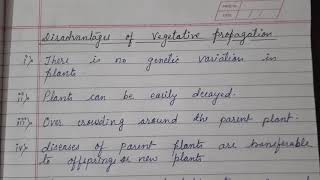 Disadvantages of Vegetative propagation
i) There is no genetic variation in
plants
ii) Plants can be easily decayed.
iii) Over crowding around the parent plant.
iv) diseases of parent plants are transferable
to offspring or new plants